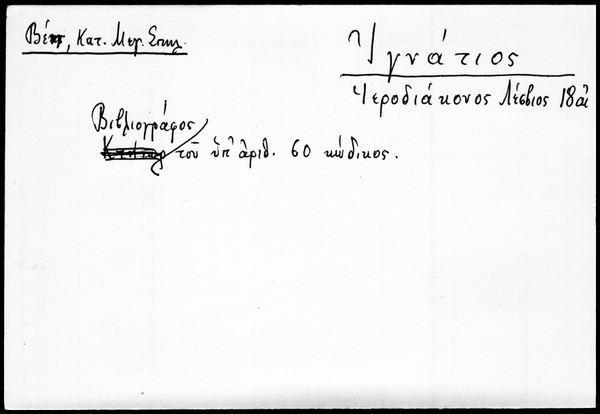 Βέη, Κατ. Μεγ. Σπηλ.
Ἰγνάτιος
Ἱεροδιάκονος Λέσβιος 18 αἰ
Βιβλιογράφος
τοῦ ὑπ' ἀριθ. 60 κώδικος.